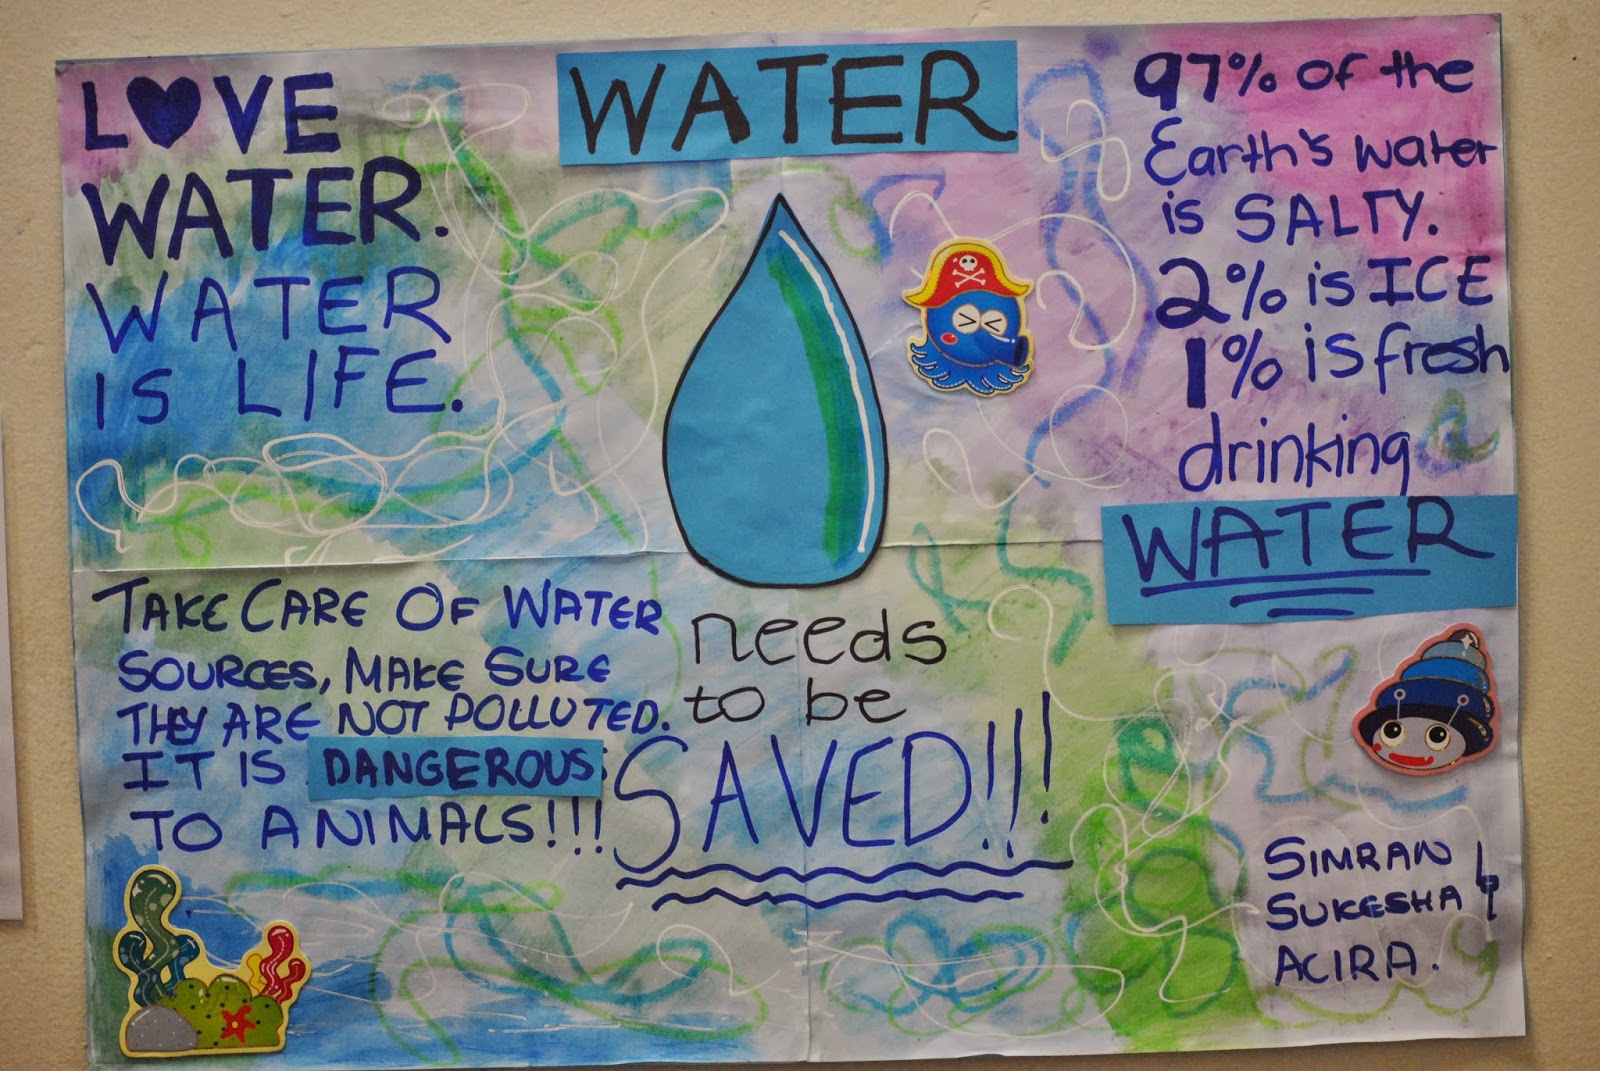 L♥VE
WATER.
WATER
IS LIFE.
WATER
97% of the
Earth's water
is SALTY.
2% is ICE
1% is fresh
drinking
WATER
TAKE CARE OF WATER
SOURCES, MAKE SURE
THEY ARE NOT POLLUTED.
IT IS DANGEROUS
TO ANIMALS!!!
needs
to be
SAVED!!!
SIMRAN
SUKESHA &
ACIRA.